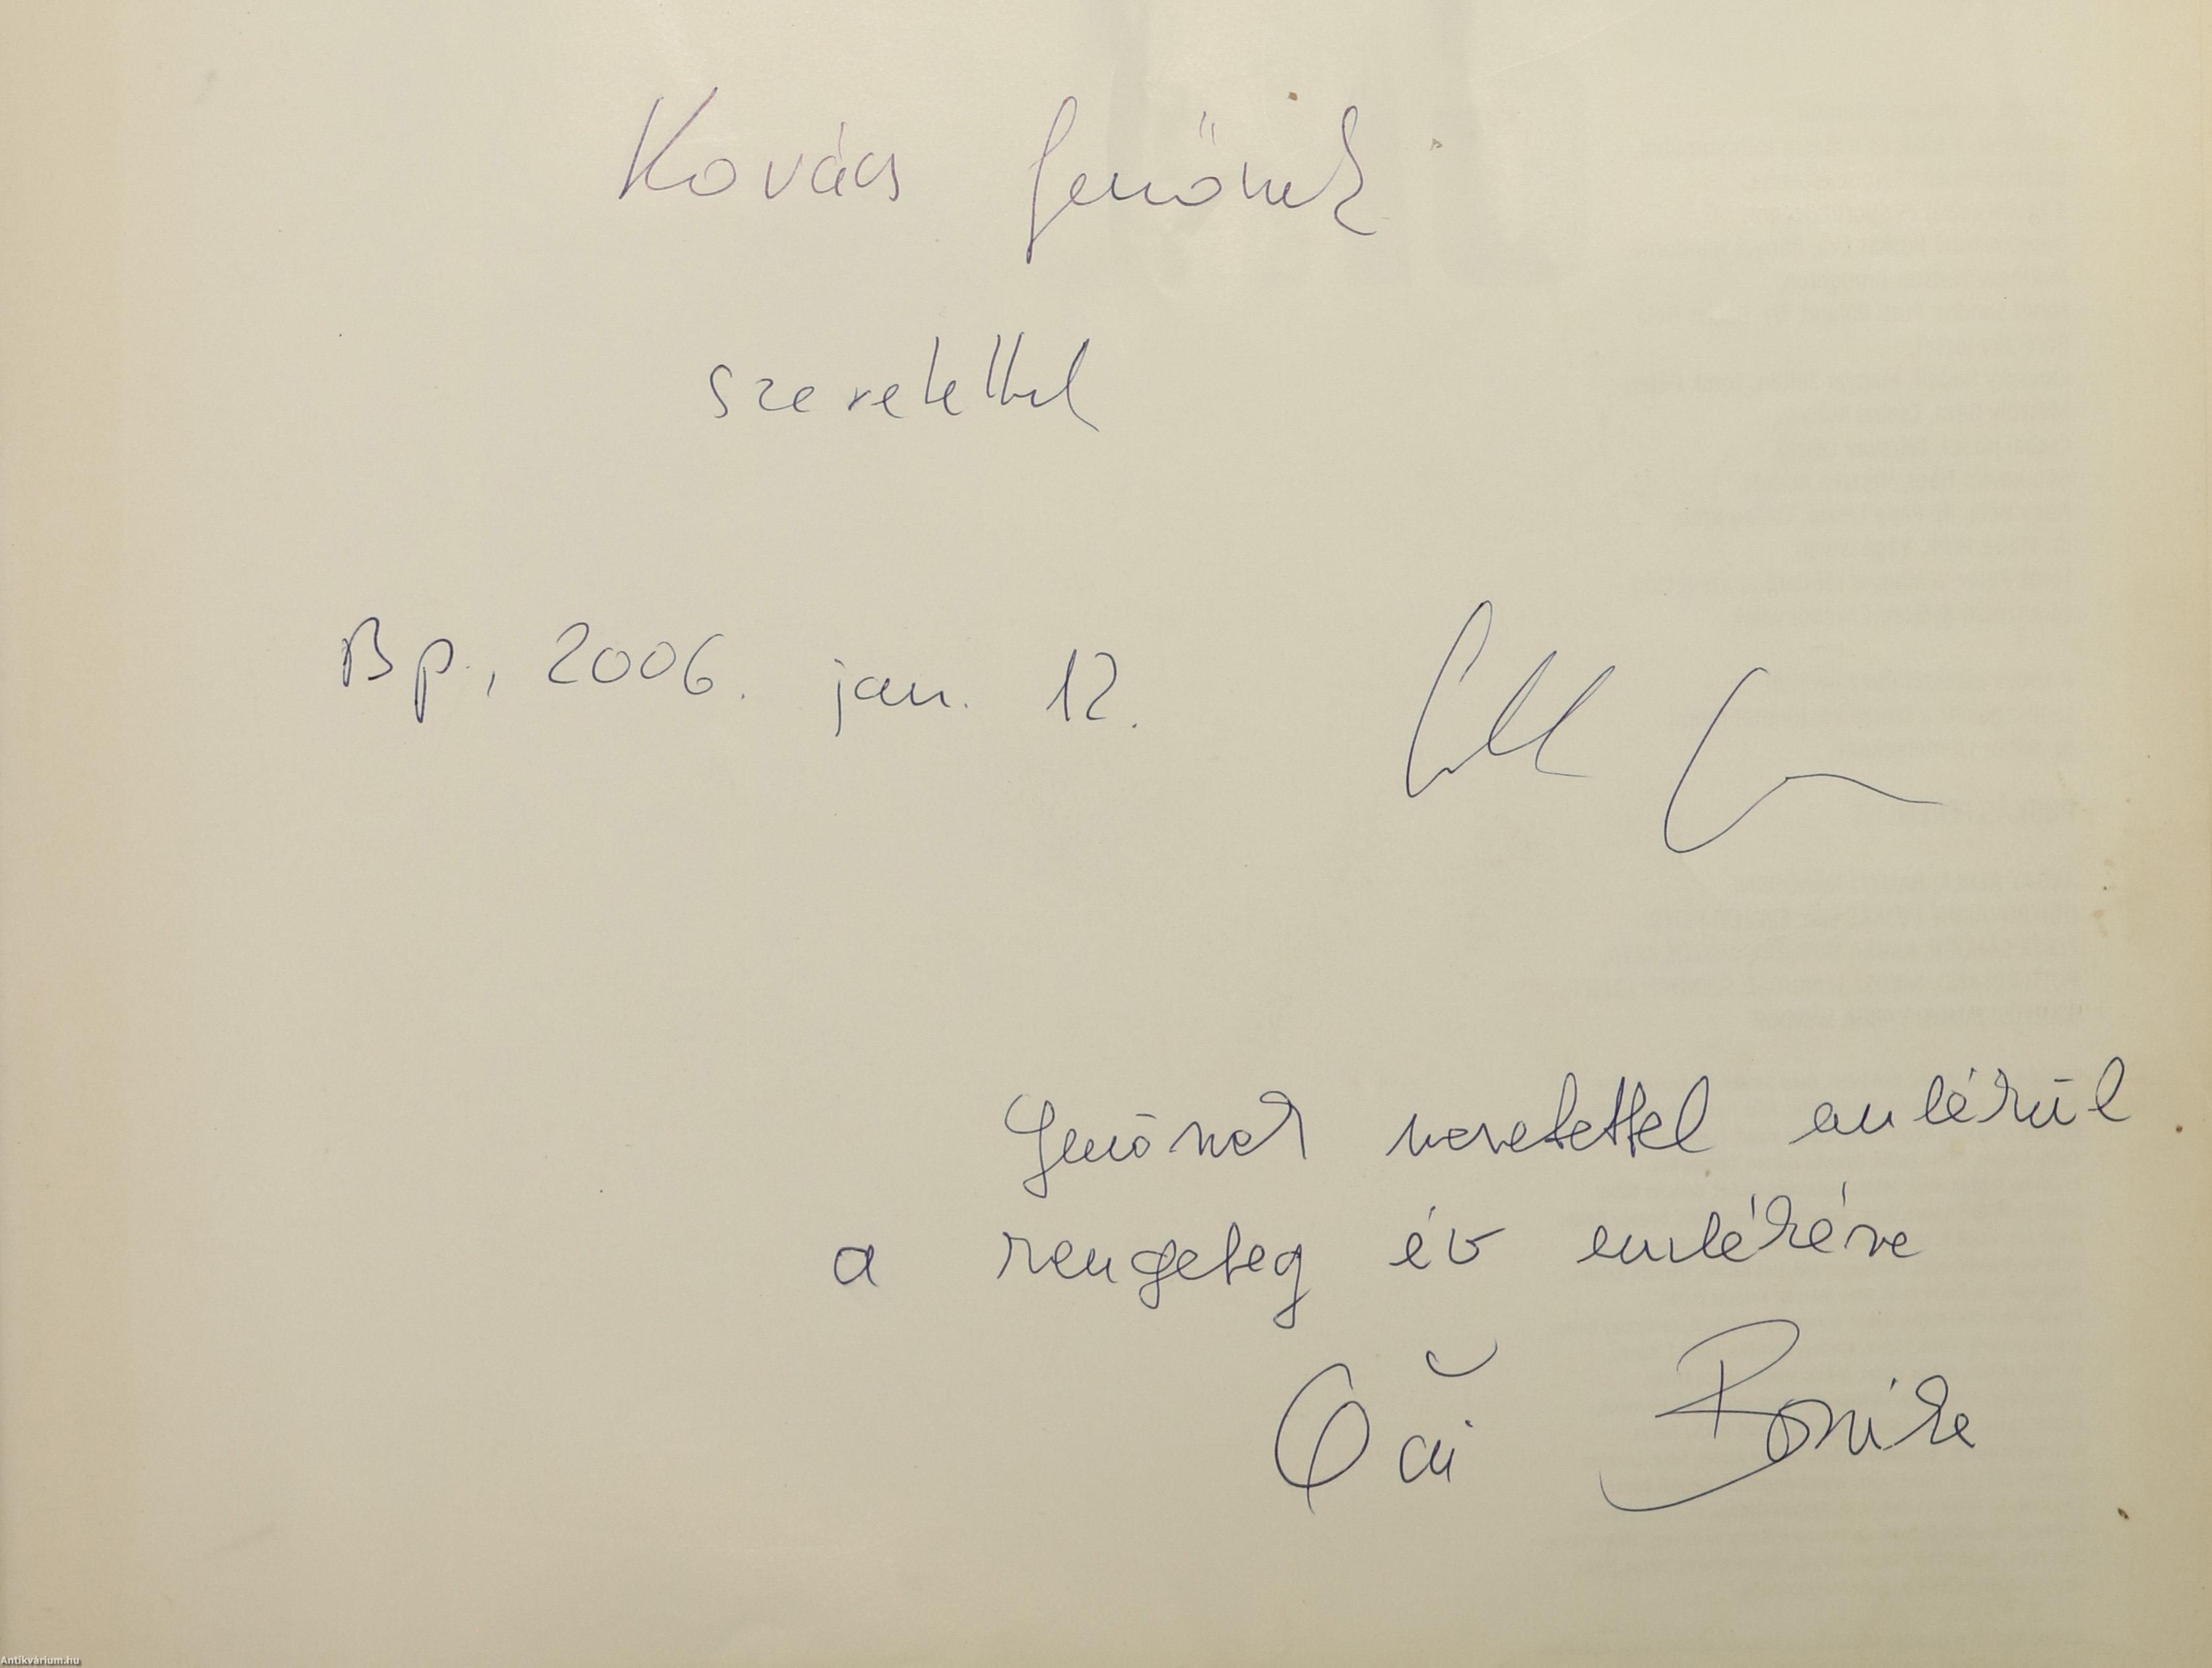 Kovács Jenőnek
szeretettel
Bp., 2006. jan. 12.
Jenőnek szeretettel emlékül
a rengeteg év emlékére
Antikvárium.hu